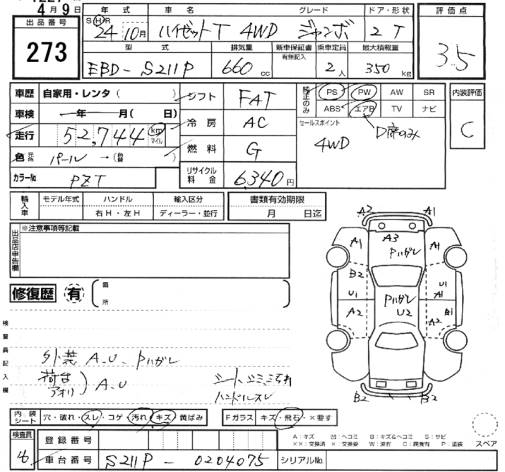 4月9日
出品番号
273
年式
車名
グレード
ドア・形状
評価点
S H R
24年10月
ハイゼットT 4WD ジャンボ
2 T
3.5
型式
排気量
新車保証書
有無記入
乗車定員
最大積載量
EBD-S211P
660cc
2人
350kg
車歴 自家用・レンタ( )
シフト
FAT
純正のみ
PS PW AW SR
ABS エアB TV ナビ
内装評価
C
車検 年 月( 日)
冷房
AC
セールスポイント
D席のみ
4WD
走行 52,744 km マイル
燃料
G
色 元色 パール →(替)
リサイクル料金
6340円
カラーNo
PZT
輸入車
モデル年式
ハンドル
右H・左H
輸入区分
ディーラー・並行
書類有効期限
月 日迄
出品店申告欄
※注意事項等記載
修復歴 有
箇所
検査員記入欄
A1
A3
A1
Pハガレ
B2
U1
U1
A1
A2
Pハガレ
U2
A1
B1
B2
B2
外装 A.U Pハガレ
荷台
アオリ
A.U
シートシミ
ハンドルスレ
内装シート
穴・破れ・スレ・コゲ 汚れ キズ 黄ばみ
Fガラス キズ・飛石・×要す
検査員
登録番号
A:キズ
スペア
車台番号
S211P-0204075
シリアルNo.